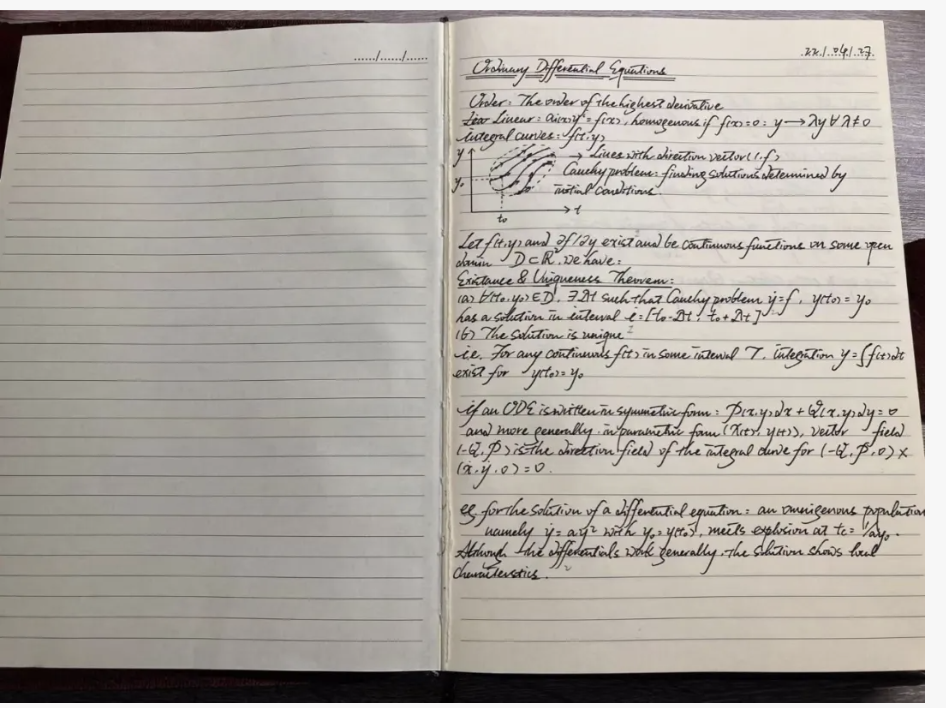 ....../....../......
22/04/27.
Ordinary Differential Equations
Order: The order of the highest derivative
Linear: aᵢ(x)yⁱ = f(x), homogenous if f(x)=0: y → λy ∀ λ≠0
Integral curves: f(t,y)
y
→ Lines with direction vector (1,f)
Cauchy problem: finding solutions determined by
y₀
initial conditions.
t₀
t
Let f(t,y) and ∂f/∂y exist and be continuous functions on some open
D⊂R². We have:
Existance & Uniqueness Theorem:
(a) ∀(t₀,y₀)∈D, ∃Δt such that Cauchy problem ẏ=f, y(t₀)=y₀
has a solution in interval [t₀-Δt, t₀+Δt]
(b) The solution is unique
i.e. For any continuous f(t) in some interval T, integration y=∫f(t)dt
exist for y(t₀)=y₀
If an ODE is written in symmetric form: P(x,y)dx + Q(x,y)dy=0
and more generally in parametric form (x(t), y(t)), vector field
(-Q,P) is the direction field of the integral curve for (-Q,P,0)×
(ẋ,ẏ,0)=0.
eg. for the solution of a differential equation: an population
namely ẏ=ay² with y₀=y(t₀), meets explosion at tc= 1/ay₀.
Although the differentials work generally, the solution shows local
characteristics.